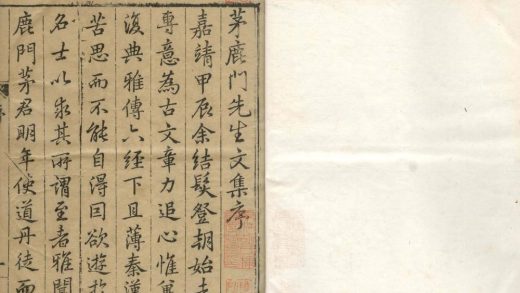 茅鹿門先生文集序
嘉靖甲辰余結髮登朝始
專意為古文章力追心惟
復典雅傳六經下且薄秦漢
苦思而不能自得囙欲遊於
名士以求其所謂至者雅聞
鹿門茅君明年使道丹徒而
序
一